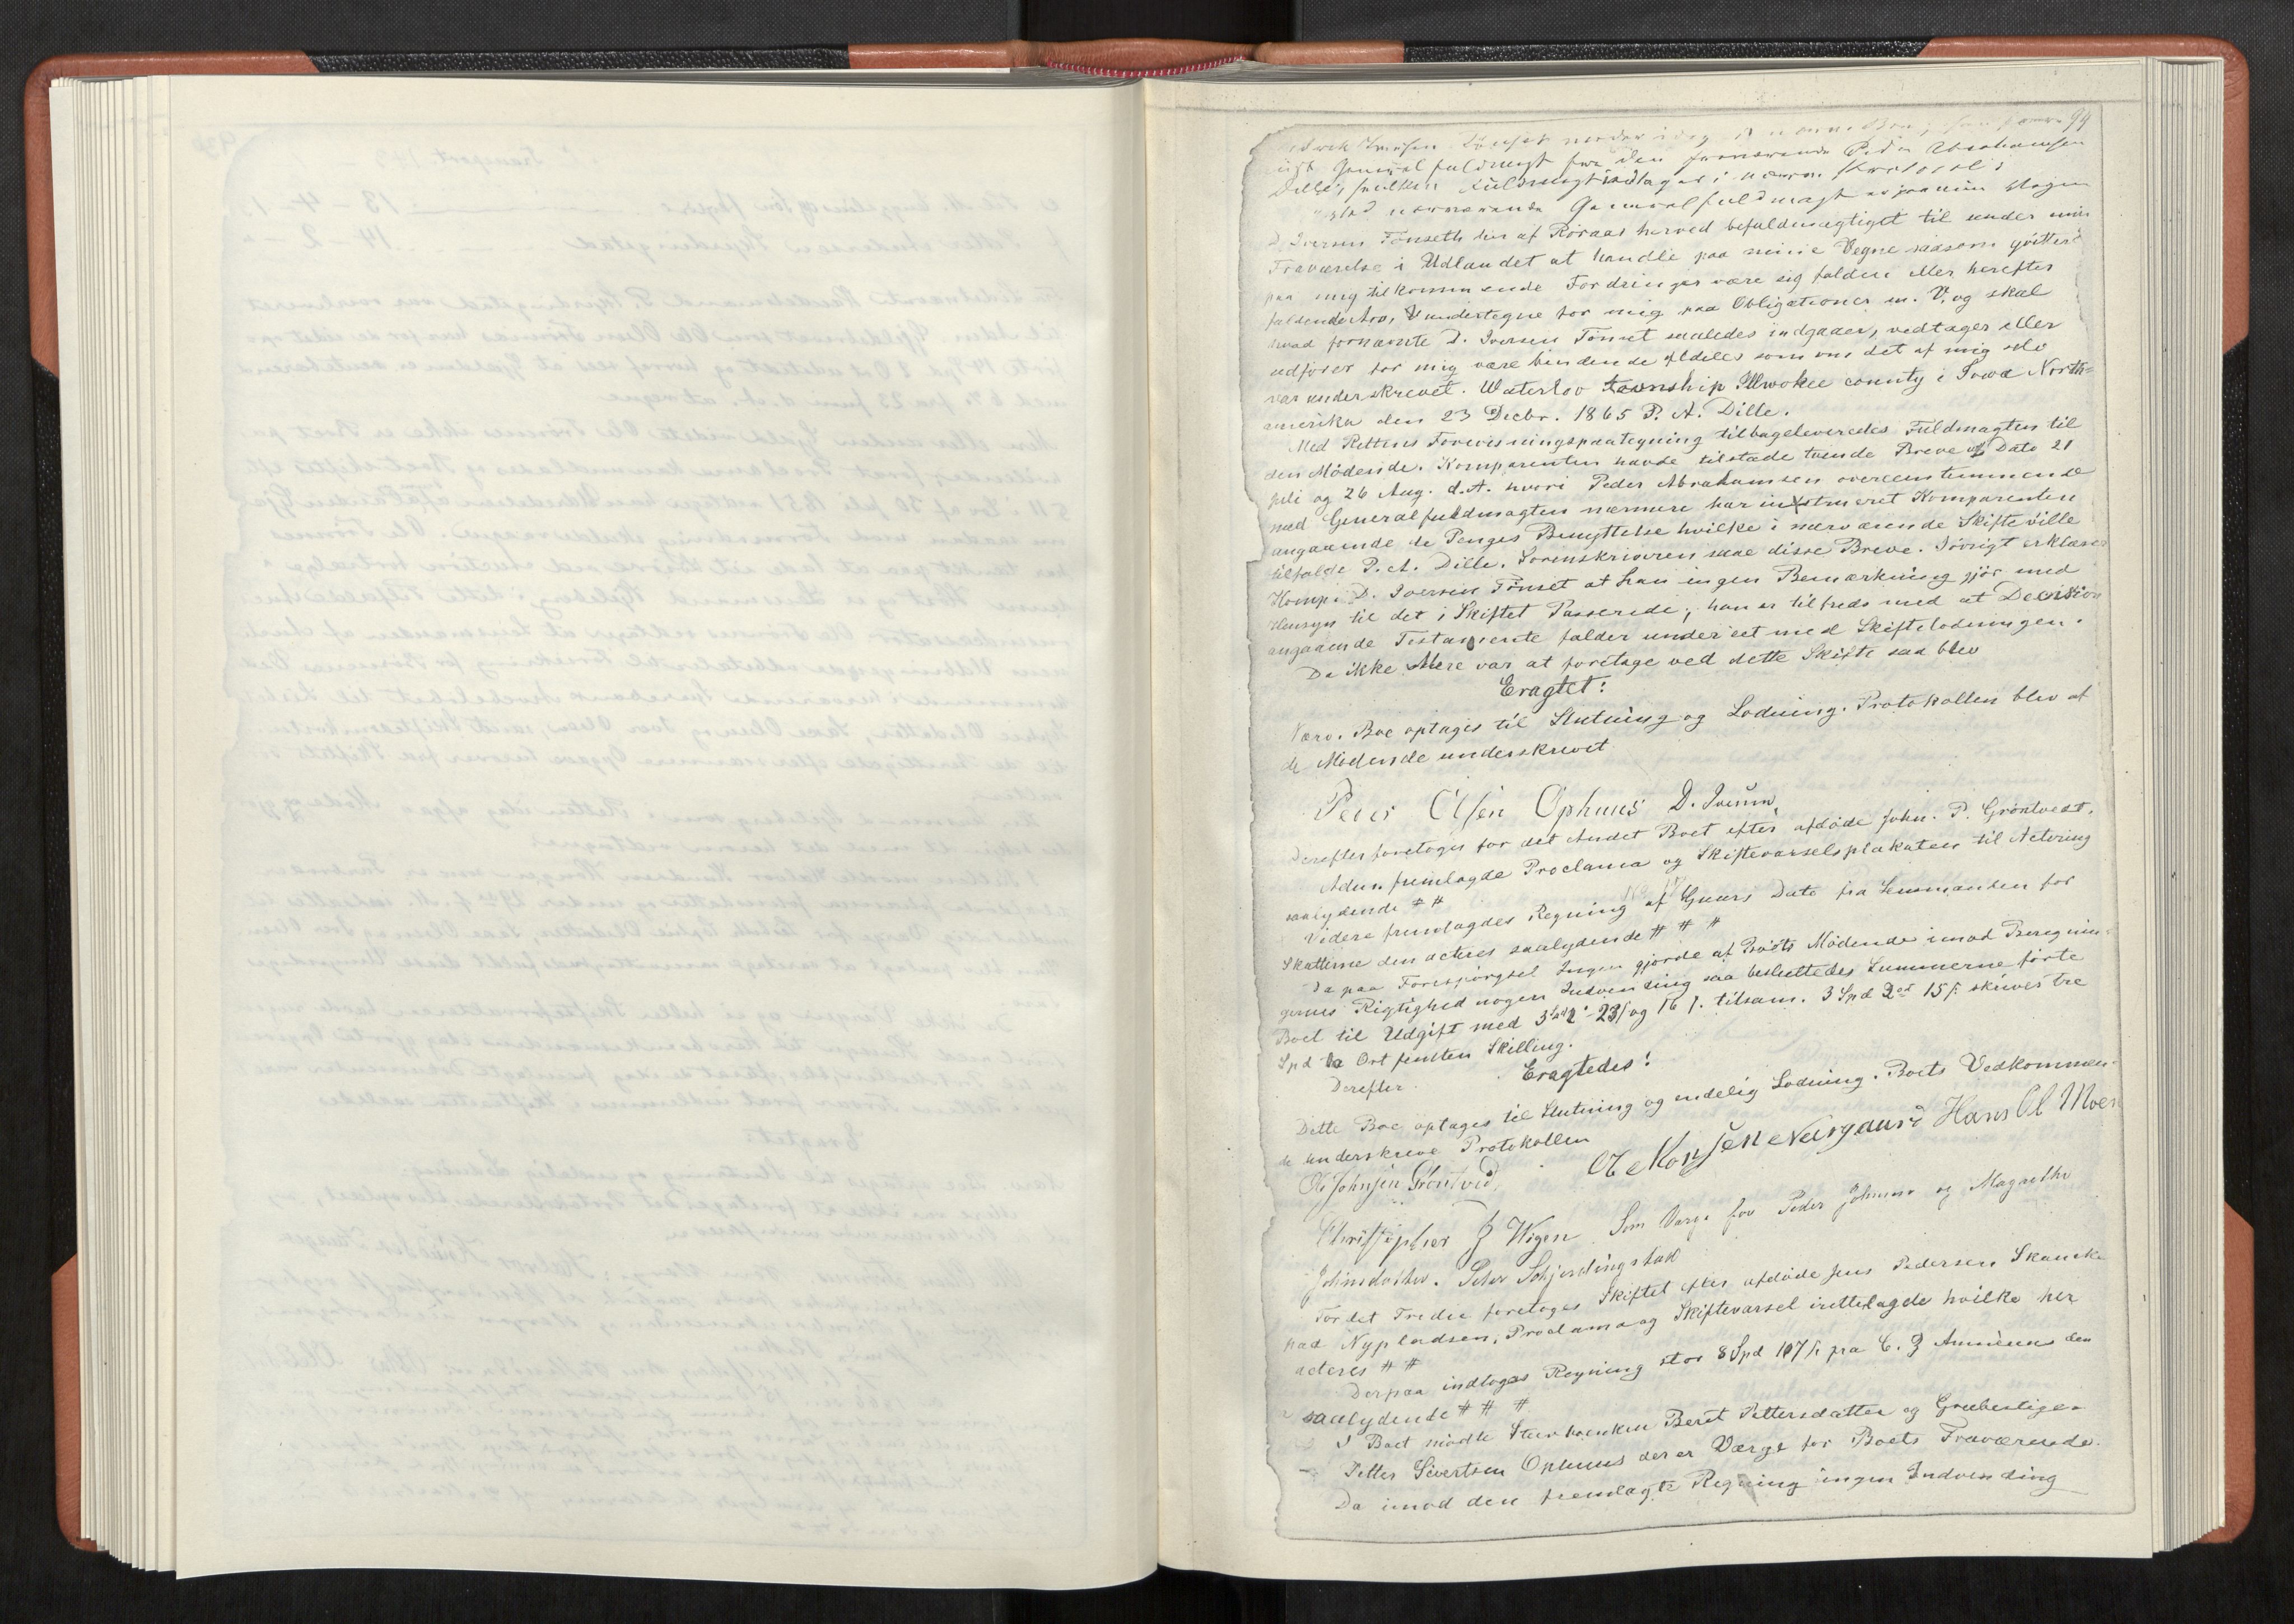 94
Iversen Tönset møder idag
Generalfuldmagt fra den fraværende Peder Abrahamsen
Dille, hvilken Fuldmagt indtages i nærv. Protocol:
nærværende Generalfuldmagt
D. Iversen Tönseth her af Röraas herved befuldmægtiget til under min
Fraværelse i Udlandet at handle paa mine Vegne saasom qvittere
paa mig tilkommende Fordringer være sig faldne eller herefter
faldende Arv, Undertegne for mig paa Obligationer m. V. og skal
hvad fornævnte D. Iversen Tönset saaledes indgaaer, vedtager eller
udförer for mig være bindende aldeles som om det af mig selv
var underskrevet. Waterloo township Allwokee county i Iowa North-
amerika den 23 Decbr. 1865 P. A. Dille.
Med Rettens Forevisningspaategning tilbageleveredes Fuldmagten til
den Mödende. Komparenten havde tilstæde tvende Breve af Dato 21
juli og 26 Aug. d. A. hvori Peder Abrahamsen overeenstemmende
med Generalfuldmagten nærmere har instrueret Komparenten
angaaende de Penges Benyttelse hvilke i nærværende Skifte ville
tilfalde P. A. Dille. Sorenskriveren saae disse Breve. Iövrigt erklærer
Komp. D. Iversen Tönset at han ingen Bemærkning gjör med
Hensyn til det i Skiftet Passerede; han er tilfreds med at Decision
angaaende Testamente falder under eet med Skiftelodningen.
Da ikke Mere var at foretage ved dette Skifte saa blev
Eragtet:
Nærv. Boe optages til Slutning og Lodning. Protokollen blev af
de Mödende underskrevet
Peder Olsen Ophuus D. Iversen.
Derefter foretoges for det Andet Boet efter afdöde John. P. Gröntvedt.
Adm. fremlagde Proclama og Skiftevarselsplakaten til Actering
saalydende # #
Videre fremlagdes Regning af Gaars Dato fra Lensmanden for
Skatterne den acteres saalydende # # #
Da paa Forespörgsel Ingen gjorde af Boets Mödende imod Beregnin-
gernes Rigtighed nogen Indvending saa besluttedes Summerne förte
Boet til Udgift med 3 Spd 2 - 23 /: og 16 /. tilsam. 3 Spd 2 ort 15 /: skriver tre
Spd to Ort femten Skilling.
Derefter Eragtedes:
Dette Boe optages til Slutning og endelig Lodning. Boets Vedkommen-
de underskreve Protokollen
Ole Johnsen Gröntved. Hans Ol Moen
Christopher J Wigen Som Værge for Peder Johnsen og Magrethe
Johnsdatter. Peter Schjerdingstad
For det Tredie foretoges Skiftet efter afdöde Jens Pedersen Skancke
paa Nypladsen; Proclama og Skiftevarsel irettelagde hvilke her
acteres # #
Derpaa indtoges Regning stor 8 Spd 107 /: fra C. J den
saalydende # # #
I Boet mödte Stervboenken Berit Pettersdatter og Grubestiger
Petter Sivertsen Ophuus der er Værge for Boets Fraværende.
Da imod den fremlagte Regning ingen Indvending